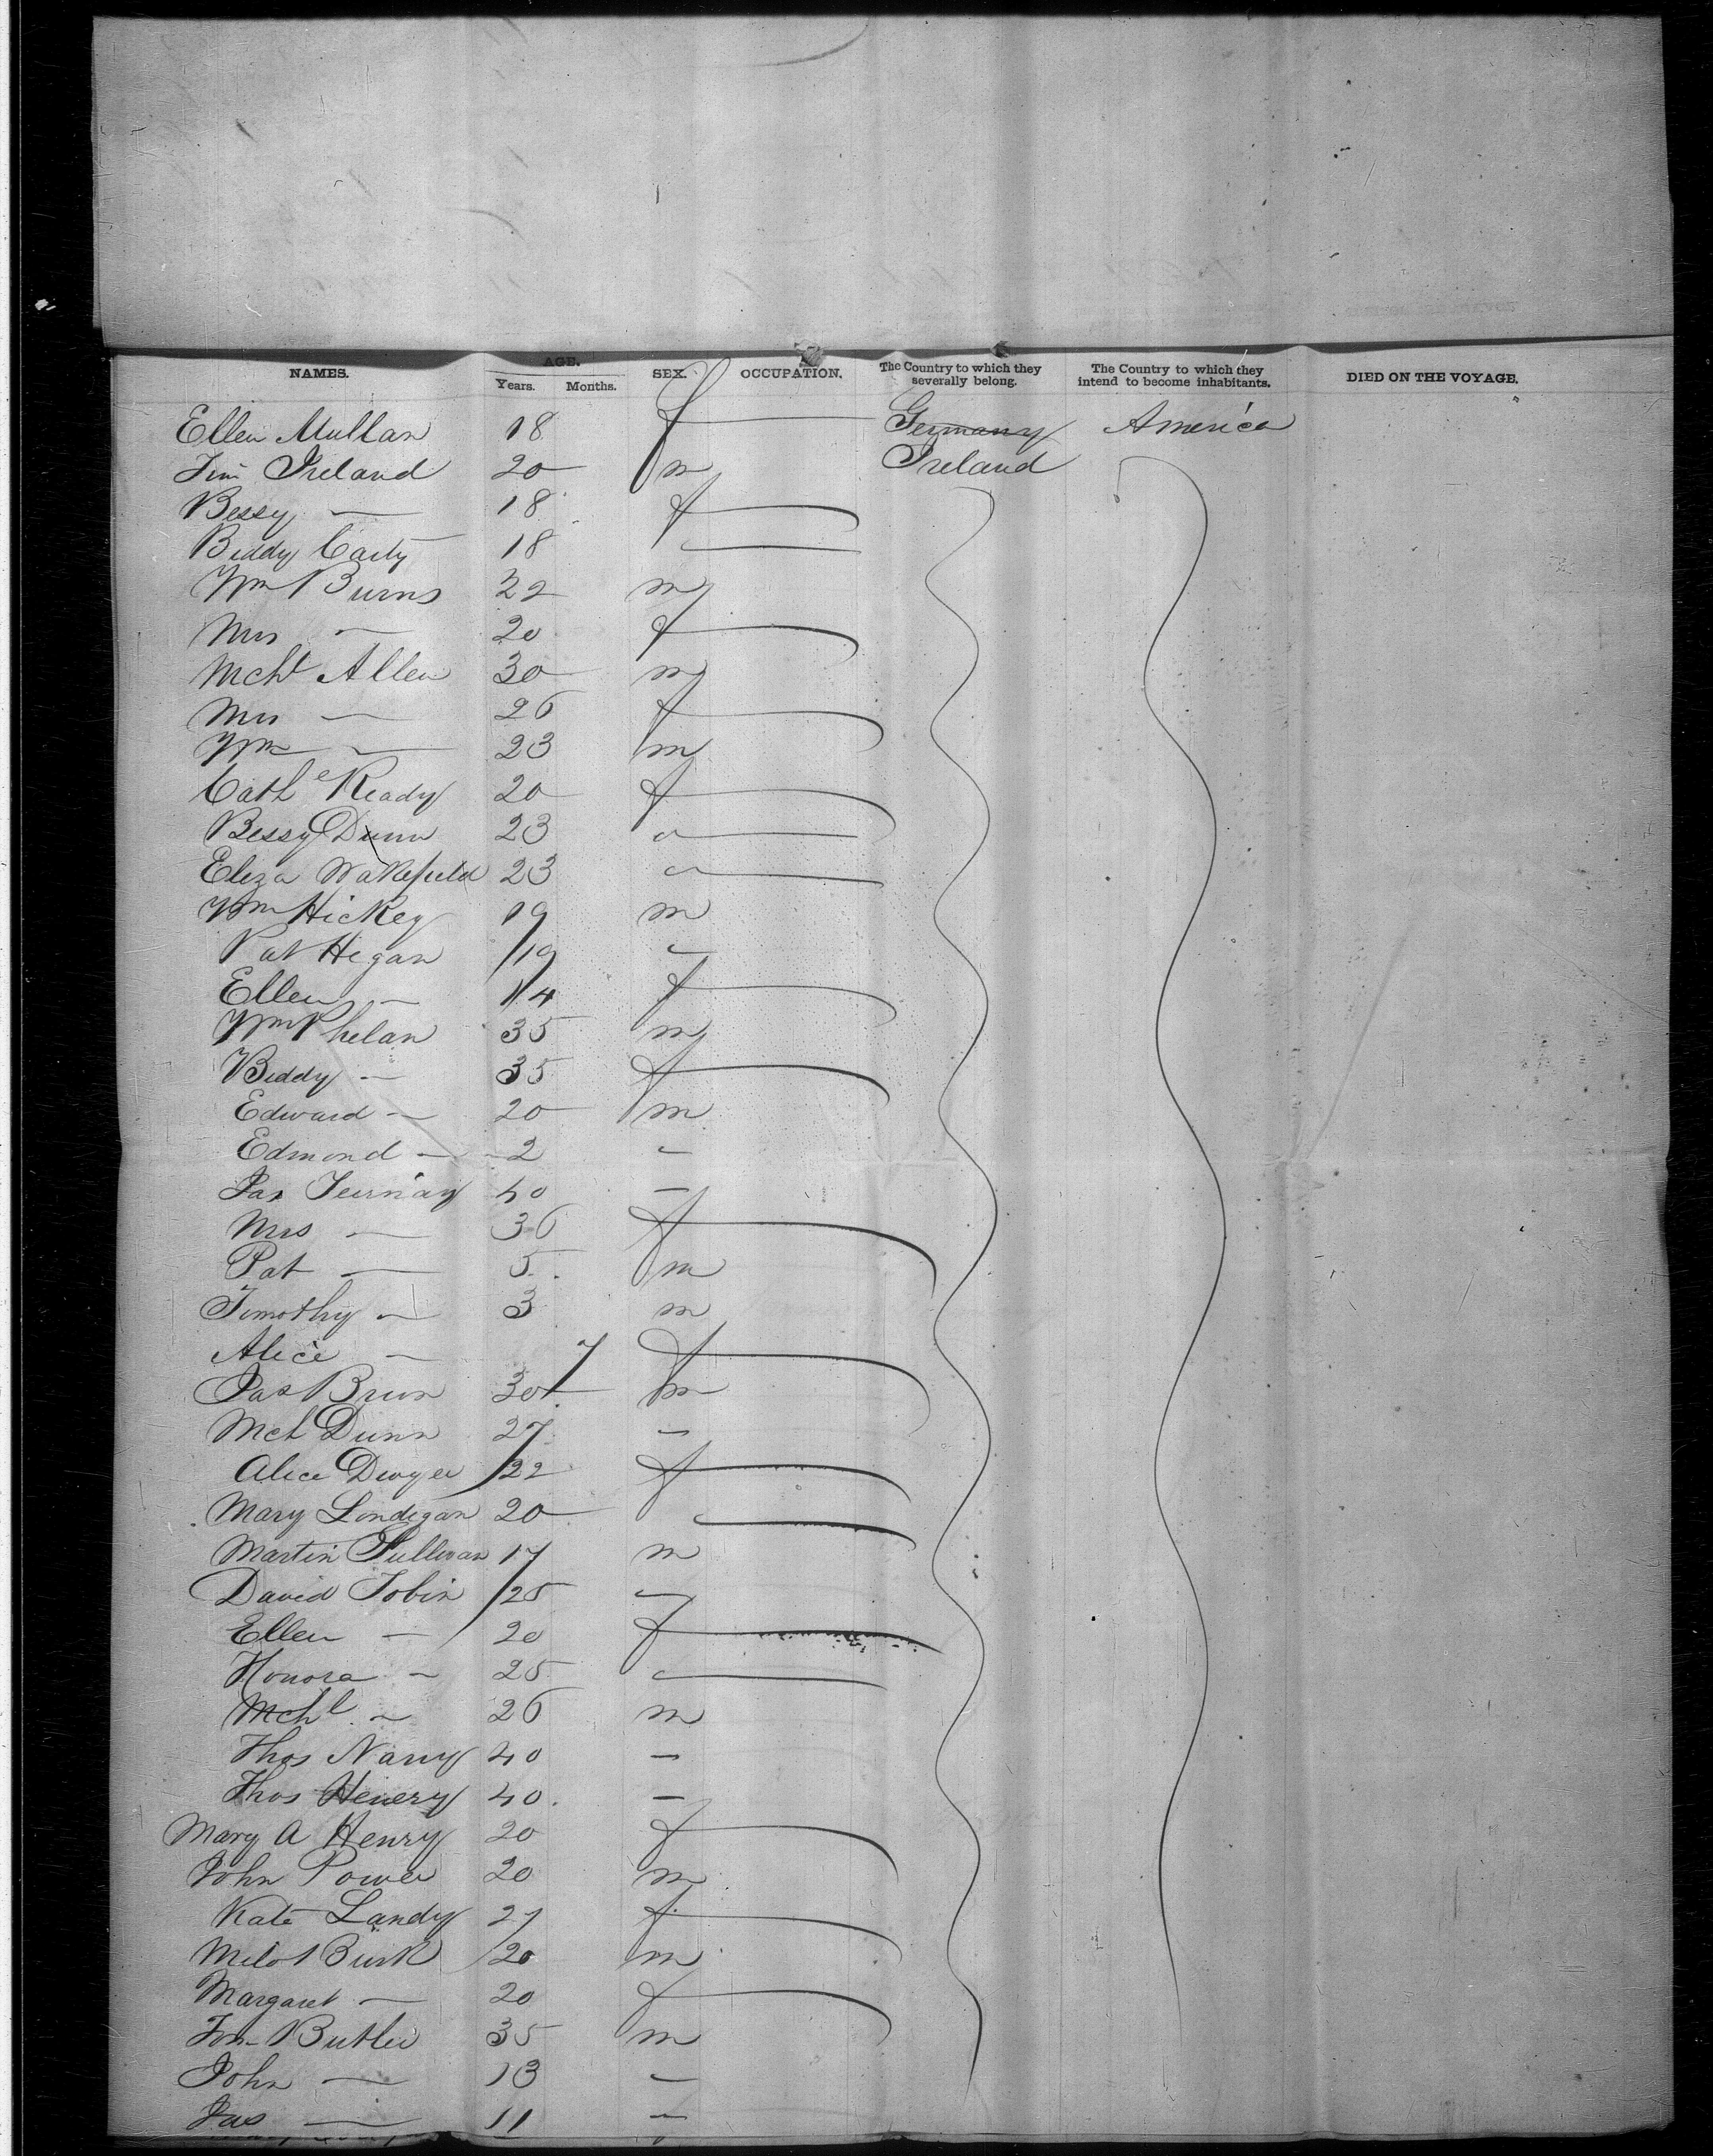 NAMES. AGE. SEX. OCCUPATION. The Country to which they severally belong. The Country to which they intend to become inhabitants. DIED ON THE VOYAGE.
Years. Months.
Ellen Mullan 18 f Germany America
Jim Ireland 20 m Ireland
Bessy — 18 f
Biddy Carty 18
Wm Burns 22 m
Mrs — 20 f
Mchl Allen 30 m
Mrs — 26 f
Wm — 23 m
Cathe Ready 20 f
Bessy Dunn 23 "
Eliza Wakefield 23 "
Wm Hickey 19 m
Pat Hegan 19 "
Ellen — 14 f
Wm Phelan 35 m
Biddy — 35 f
Edward — 20 m
Edmond — 2 "
Jas 40 —
Mrs — 36 f
Pat — 5 m
Timothy — 3 m
Alice — 7 f
Jas Brun 30 m
Mch Dunn 27 —
Alice Dwyer 22 f
Mary Londigan 20
Martin Sullivan 17 m
David Tobin 25 —
Ellen — 20 f
Honora — 25 "
Mchl — 26 m
Thos Nary 40 —
Thos Henery 40 —
Mary A Henry 20 f
John Power 20 m
Kate Landy 27 f
Burk 20 m
Margaret — 20 f
Butler 35 m
John — 13 —
Jas — 11 —